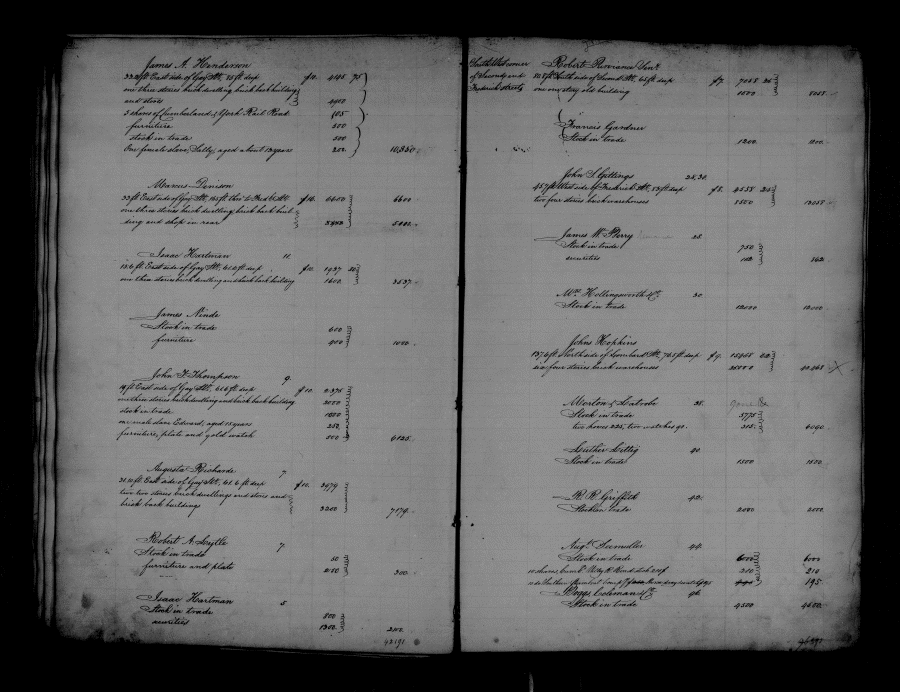 James A. Henderson
33.2 ft East side of Gay St, 85 ft deep f10. 4195 75
one three stories brick dwelling brick back building
and store 4900
3 shares of Cumberland & York Rail Road 105
furniture 500
stock in trade 500
One female slave, Sally, aged about 13 years 200. 10,350
Marcus Denison
33 ft East side of Gay St, 165 ft thro' to Fredk St f10. 6600 6600
one three stories brick dwelling brick back buil-
ding and shop in rear 5000
Isaac Hartman 11.
18.6 ft East side of Gay St, 61.0 ft deep f10. 1937 50
one three stories brick dwelling and back back building 1600. 3537.
James Ninde
Stock in trade 600
furniture 400 1000
John F. Thompson 9.
19 ft East side of Gay St, 61.6 ft deep f10. 2375
one three stories brick dwelling and back back building 3000
stock in trade
one male slave Edward, aged 18 years 250.
furniture, plate and gold watch 500 6125.
Augusta Richards 7
21.10 ft East side of Gay St, 61.6 ft deep f10. 3979
two two stories brick dwellings and store and
brick back buildings 3200 7179
Robert A. 7.
Stock in trade 50
furniture and plate 250 300.
Isaac Hartman 5
Stock in trade 800
securities 1300 2100
43191
South West corner
of Second and
Frederick streets
Robert Senr
South side of Second St, 65 ft deep f7. 7058 25
one one story old building 1000 8058
Francis Gardner
Stock in trade 1200. 1200.
John S. Gittings 28.30.
45.7 ft West side of Frederick St, 53 ft deep f8. 4558 25
two four stories back warehouses 8500 13058
James W. Perry 28.
Stock in trade 750
securities 112 862
Wm Hollingsworth & Co. 30.
Stock in trade 12000 12000
Johns Hopkins
137.6 ft North side of Lombard St, 76.5 ft deep f9. 15068 22
six four stories brick warehouses 25000 40068 X
Morton & Latrobe 38. gone
Stock in trade 5775
two horses 225, two watches 90. 315. 6090
Luther Littig 40.
Stock in trade 1500 1500.
R. R. Griffith 42.
Stock in trade 2000 2000.
Augt. Seemuller 44.
Stock in trade 6000 6000
10 shares 210 210
195
Boggs Coleman & Co. 46.
Stock in trade 4500 4500.